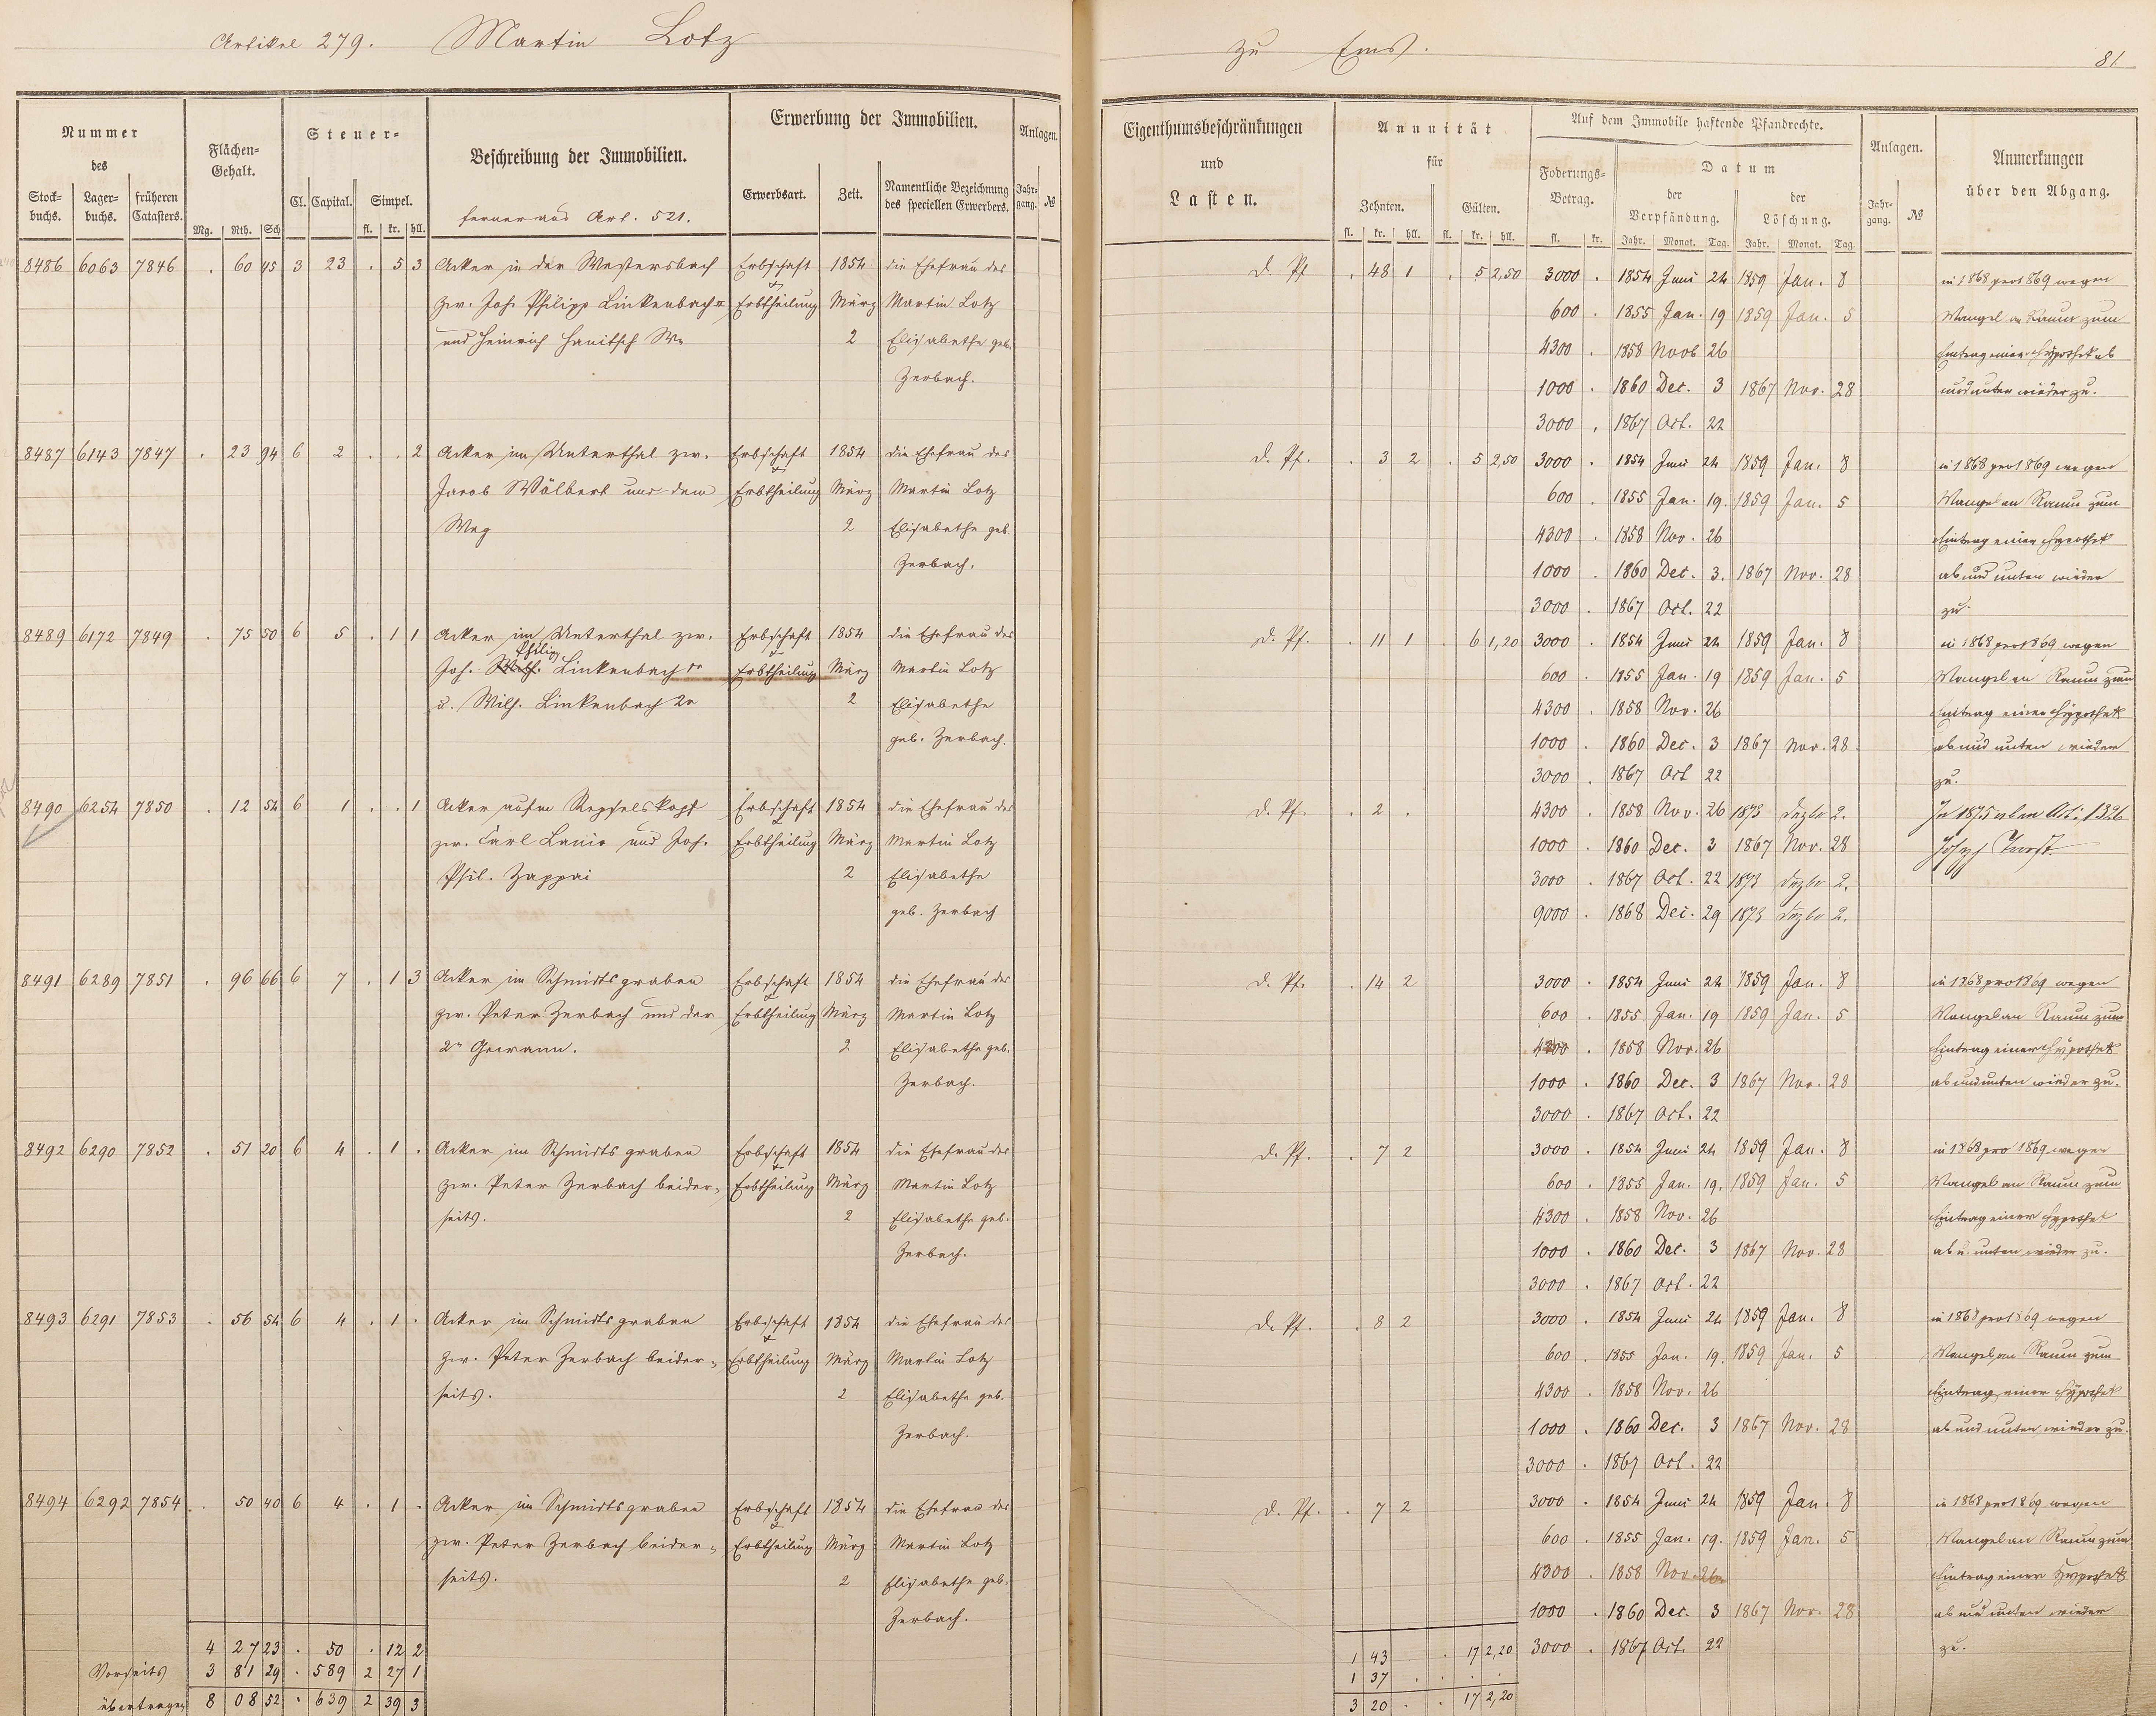 Artikel 279. Martin Lotz
zu Ems.
81
Nummer
des
Stock-
buchs.
Lager-
buchs.
früheren
Catasters.
Flächen-
Gehalt.
Mg. Rth. Sch
Steuer-
Cl. Capital. Simpel.
fl. kr. hll.
Beschreibung der Immobilien.
ferner aus Art. 521.
Erwerbung der Immobilien.
Erwerbsart. Zeit. Namentliche Bezeichnung
des speciellen Erwerbers.
Anlagen.
Jahr-
gang. №
Eigenthumsbeschränkungen
und
Lasten.
Annuität
für
Zehnten. Gülten.
fl. kr. hll. fl. kr. hll.
Auf dem Immobile haftende Pfandrechte.
Foderungs-
Betrag.
fl. kr.
Datum
der
Verpfändung.
der
Löschung.
Jahr. Monat. Tag. Jahr. Monat. Tag.
Anlagen.
Jahr-
gang. №
Anmerkungen
über den Abgang.
8486 6063 7846 . 60 45 3 23 . 5 3 Acker in der Westersbach Erbschaft 1854 die Ehefrau des
zw. Joh. Philipp Linkenbach & Erbtheilung März Martin Lotz
und Heinrich Hanitsch We 2 Elisabethe geb.
Zerbach.
D. Pf . 48 1 . 5 2,50 3000 . 1854 Juni 24 1859 Jan. 8 in 1868 pro 1869 wegen
600 . 1855 Jan. 19 1859 Jan. 5 Mangel an Raum zum
4300 . 1858 Novb 26 Eintrag einer Hypothek ab
1000 . 1860 Dec. 3 1867 Nov. 28 und unten wieder zu.
3000 . 1867 Oct. 22
8487 6143 7847 . 23 94 6 2 . . 2 Acker im Unterthal zw. Erbschaft 1854 die Ehefrau des
Jacob Wölbert und dem & Erbtheilung März Martin Lotz
Weg 2 Elisabethe geb.
Zerbach.
D. Pf. . 3 2 . 5 2,50 3000 . 1854 Juni 24 1859 Jan. 8 in 1868 pro 1869 wegen
600 . 1855 Jan. 19. 1859 Jan. 5 Mangel an Raum zum
4300 . 1858 Nov. 26 Eintrag einer Hypothek
1000 . 1860 Dec. 3. 1867 Nov. 28 ab und unten wieder
3000 . 1867 Oct. 22 zu.
8489 6172 7849 . 75 50 6 5 . 1 1 Acker im Unterthal zw. Erbschaft 1854 die Ehefrau des
Philipp
Joh. Wilh. Linkenbach & Erbtheilung März Martin Lotz
u. Wilh. Linkenbach 2r 2 Elisabethe
geb. Zerbach.
D. Pf. . 11 1 . 6 1,20 3000 . 1854 Juni 24 1859 Jan. 8 in 1868 pro 1869 wegen
600 . 1855 Jan. 19 1859 Jan. 5 Mangel an Raum zum
4300 . 1858 Nov. 26 Eintrag einer Hypothek
1000 . 1860 Dec. 3 1867 Nov. 28 ab und unten wieder
3000 . 1867 Oct 22 zu.
8490 6254 7850 . 12 54 6 1 . . 1 Acker aufm Erbschaft 1854 die Ehefrau des
zw. Carl Lanio und Joh. & Erbtheilung März Martin Lotz
Phil. Zappai 2 Elisabethe
geb. Zerbach
D. Pf. . 2 . 4300 . 1858 Nov. 26 1873 Dezbr 2. In 1875 Art. 1326
1000 . 1860 Dec. 3 1867 Nov. 28 Joseph
3000 . 1867 Oct. 22 1873 Dezbr 2.
9000 . 1868 Dec. 29 1873 Dezbr 2.
8491 6289 7851 . 96 66 6 7 . 1 3 Acker im Schmidtsgraben Erbschaft 1854 die Ehefrau des
zw. Peter Zerbach und der & Erbtheilung März Martin Lotz
2n Gewann. 2 Elisabethe geb.
Zerbach.
D. Pf. . 14 2 3000 . 1854 Juni 24 1859 Jan. 8 in 1868 pro 1869 wegen
600 . 1855 Jan. 19 1859 Jan. 5 Mangel an Raum zum
4300 . 1858 Nov. 26 Eintrag einer Hypothek
1000 . 1860 Dec. 3 1867 Nov. 28 ab und unten wieder zu.
3000 . 1867 Oct. 22
8492 6290 7852 . 51 20 6 4 . 1 . Acker im Schmidtsgraben Erbschaft 1854 die Ehefrau des
zw. Peter Zerbach beider- & Erbtheilung März Martin Lotz
seits. 2 Elisabethe geb.
Zerbach.
D. Pf. . 7 2 3000 . 1854 Juni 24 1859 Jan. 8 in 1868 pro 1869 wegen
600 . 1855 Jan. 19. 1859 Jan. 5 Mangel an Raum zum
4300 . 1858 Nov. 26 Eintrag einer Hypothek
1000 . 1860 Dec. 3 1867 Nov. 28 ab u. unten wieder zu.
3000 . 1867 Oct. 22
8493 6291 7853 . 56 54 6 4 . 1 . Acker im Schmidtsgraben Erbschaft 1854 die Ehefrau des
zw. Peter Zerbach beider- & Erbtheilung März Martin Lotz
seits. 2 Elisabethe geb.
Zerbach.
D. Pf. . 8 2 3000 . 1854 Juni 24 1859 Jan. 8 in 1868 pro 1869 wegen
600 . 1855 Jan. 19. 1859 Jan. 5 Mangel an Raum zum
4300 . 1858 Nov. 26 Eintrag einer Hypothek
1000 . 1860 Dec. 3 1867 Nov. 28 ab und unten wieder zu.
3000 . 1867 Oct. 22
8494 6292 7854 . 50 40 6 4 . 1 . Acker im Schmidtsgraben Erbschaft 1854 die Ehefrau des
zw. Peter Zerbach beider- & Erbtheilung März Martin Lotz
seits. 2 Elisabethe geb.
Zerbach.
D. Pf. . 7 2 3000 . 1854 Juni 24 1859 Jan. 8 in 1868 pro 1869 wegen
600 . 1855 Jan. 19. 1859 Jan. 5 Mangel an Raum zum
4300 . 1858 Nov. 26 Eintrag einer Hypothek
1000 . 1860 Dec. 3 1867 Nov. 28 ab und unten wieder
3000 . 1867 Oct. 22 zu.
4 27 23 . 50 . 12 2
Vorseits 3 81 29 . 589 2 27 1
übertragen 8 08 52 . 639 2 39 3
1 43 . 17 2,20
1 37 . . . .
3 20 . . 17 2,20